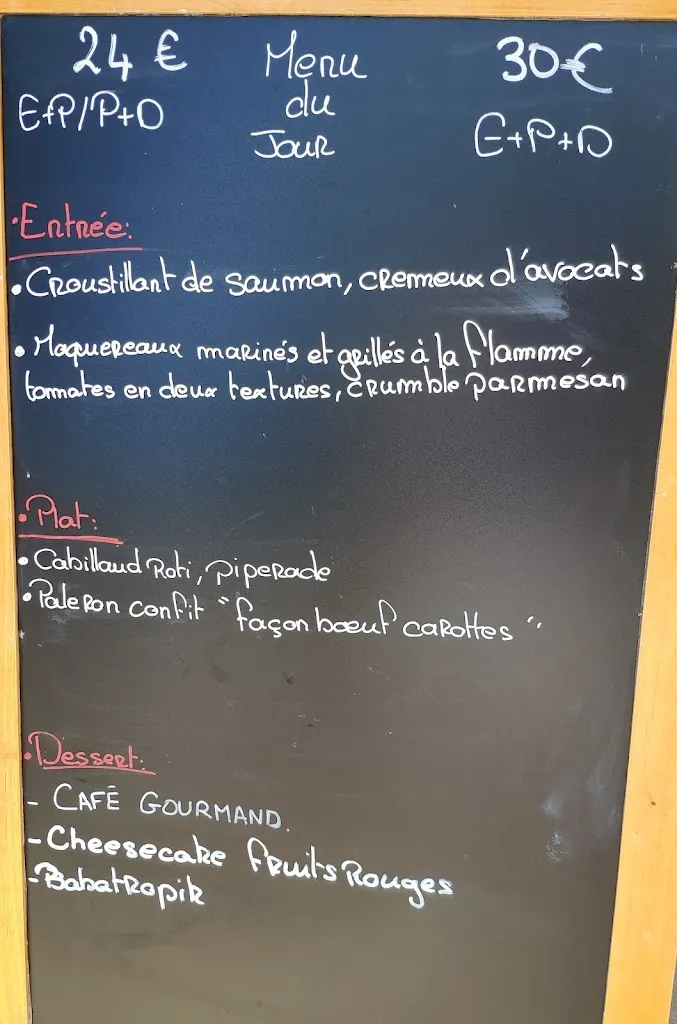 24 € Menu 30€
E+P/P+D du E+P+D
Jour
• Entrée:
• Croustillant de saumon, cremeux d'avocats
• Maquereaux marinés et grillés à la flamme,
tomates en deux textures, crumble parmesan
• Plat:
• Cabillaud Roti, piperade
• Paleron confit "façon bœuf carottes"
• Dessert:
- CAFÉ GOURMAND.
- Cheesecake fruits Rouges
- Babatropik